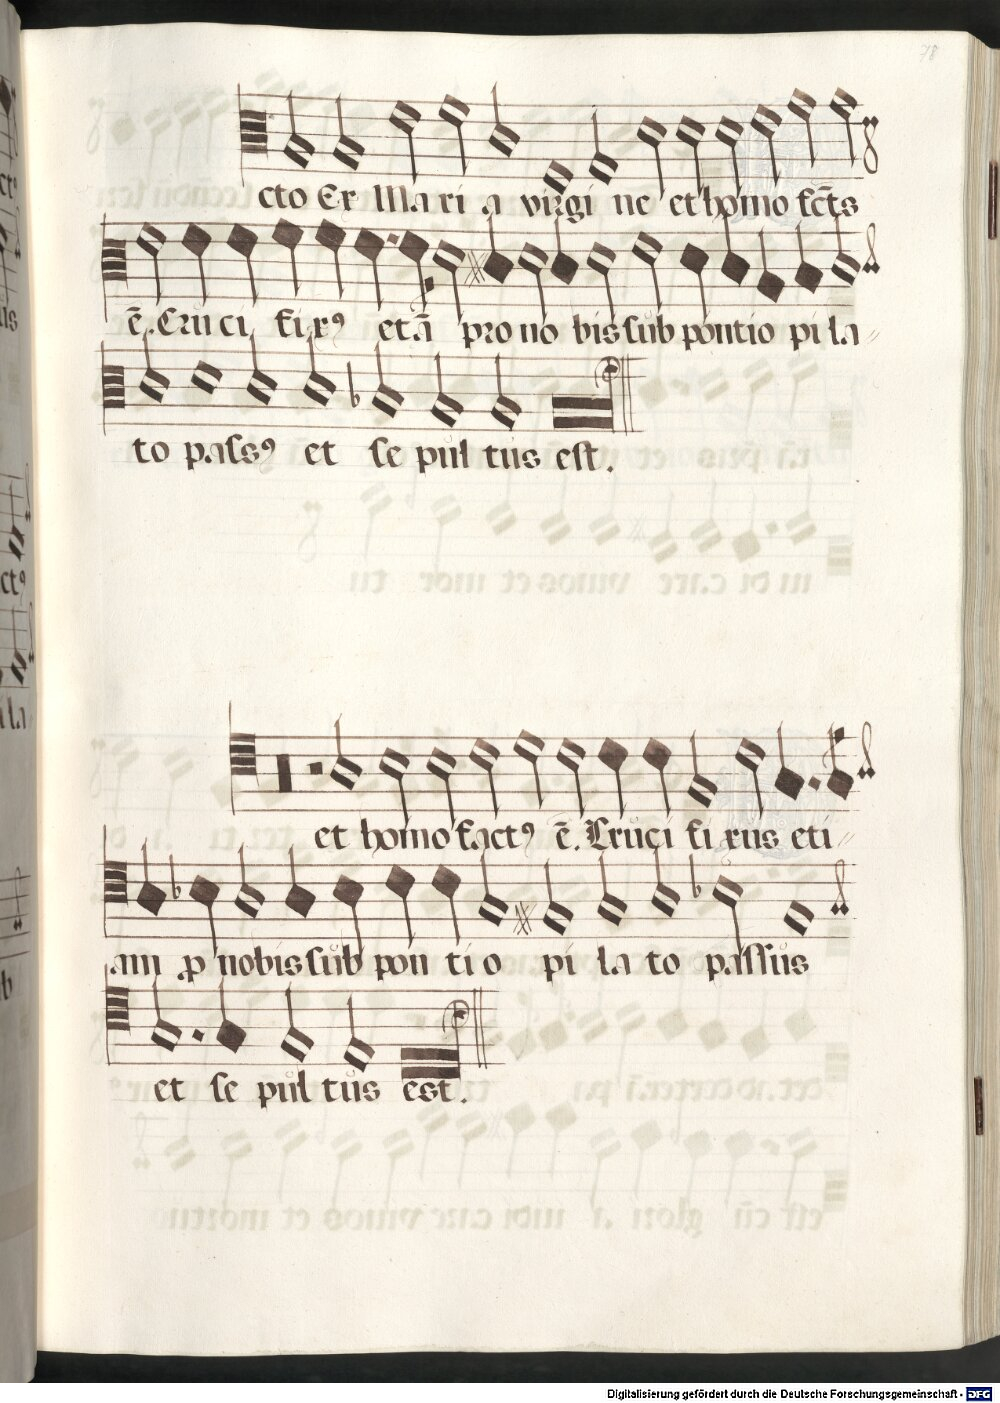 78
cto Ex Maria virgine et homo fcts
ē. Cruci fixꝰ et ā pro nobis sub pontio pila
to passꝰ et sepultus est.
et homo factꝰ ē. Cruci fixus eti
am p nobis sub pontio pilato passus
et sepultus est.
Digitalisierung gefördert durch die Deutsche Forschungsgemeinschaft - DFG